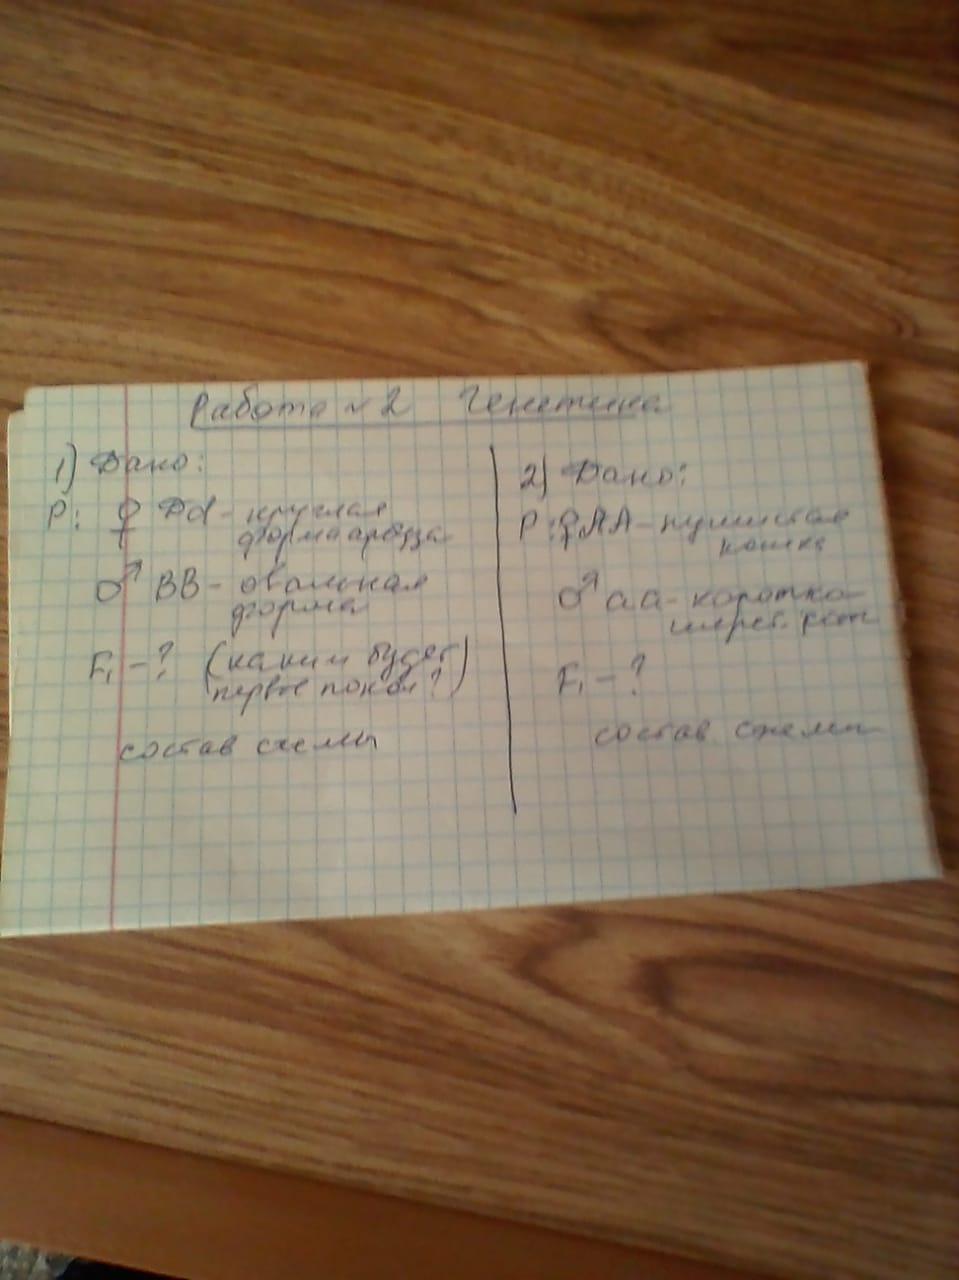 Работа №2 Генетика
1) Дано:
P: ♀ Dd - круглая
форма арбуза
♂ BB - овальная
форма
F₁ - ? (каким будет
первое покол?)
состав схемы
2) Дано:
P: ♀ AA - пушистая
кошка
♂ aa - коротко-
шерст. кот
F₁ - ?
состав схемы